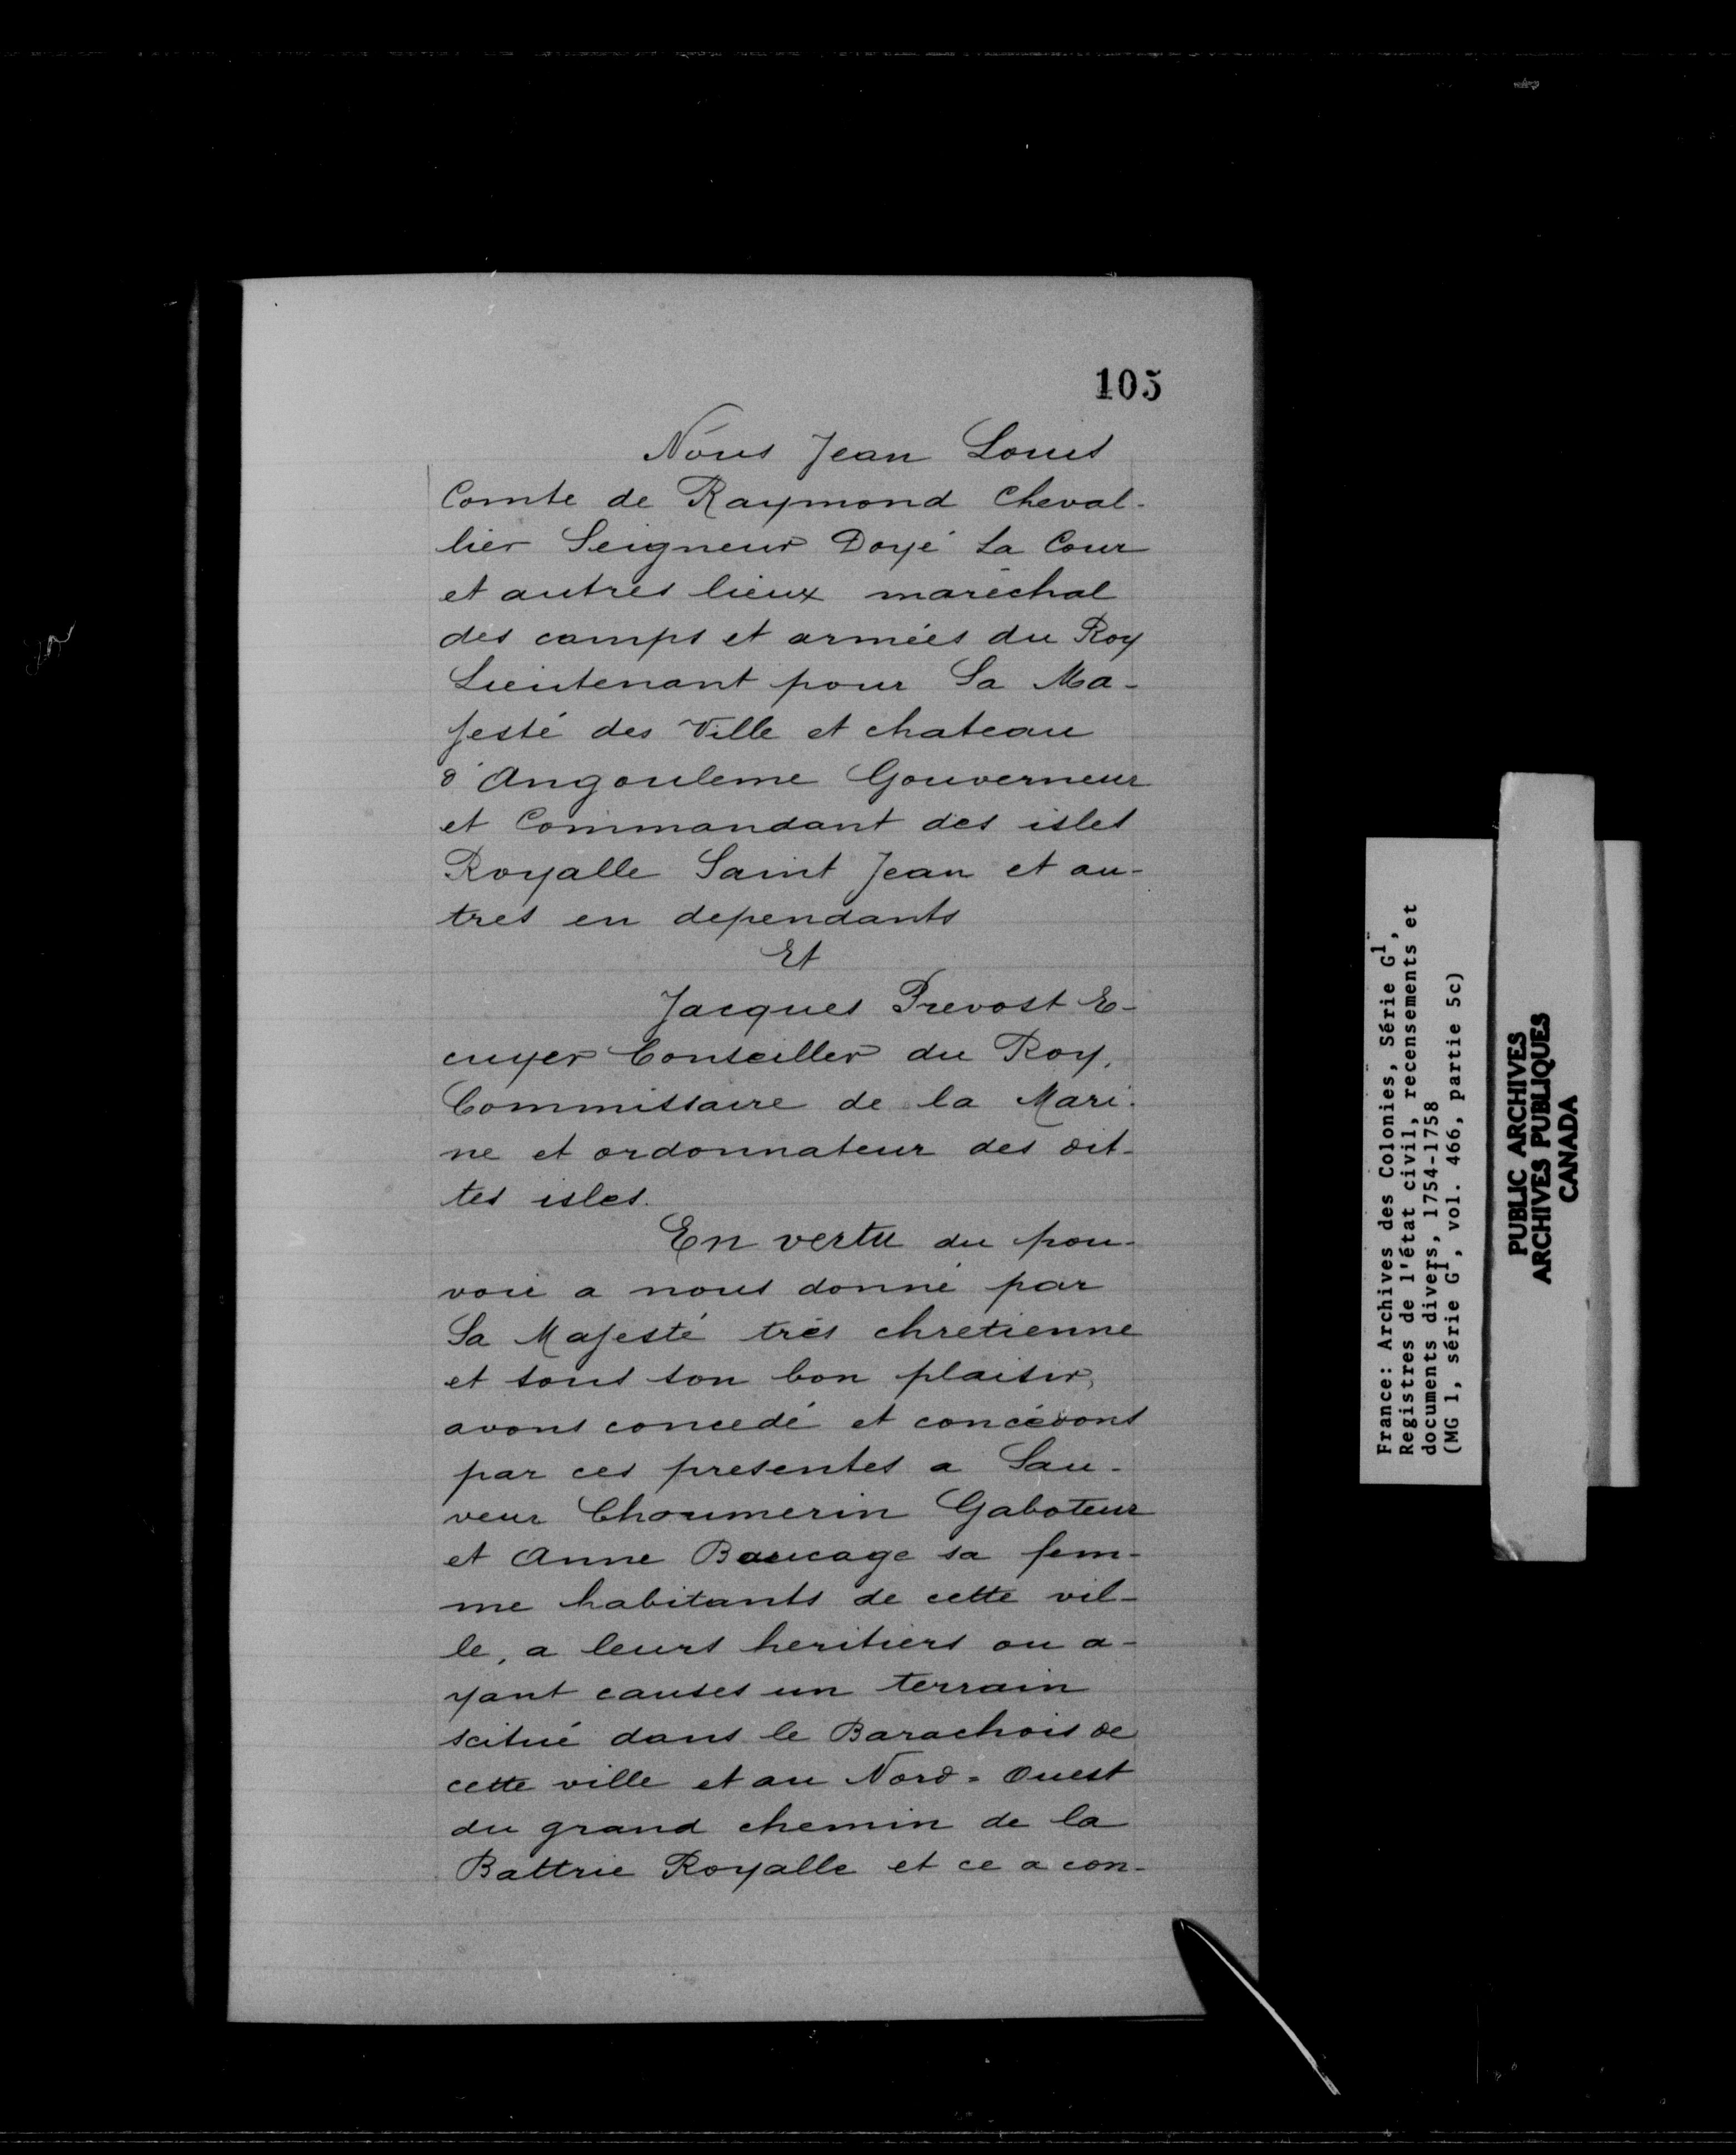 105
Nous Jean Louis
Comte de Raymond Cheval-
lier Seigneur Doyé La Cour
et autres lieux maréchal
des camps et armées du Roy
Lieutenant pour Sa Ma-
jesté des Ville et chateau
d'Angouleme Gouverneur
et Commandant des isles
Royalle Saint Jean et au-
tres en dependants
Et
Jacques Prevost E-
cuyer Conseiller du Roy,
Commissaire de la Mari-
ne et ordonnateur des dit-
tes isles.
En vertu du pou-
voir a nous donné par
Sa Majesté très chretienne
et sous son bon plaisir,
avons concedé et concédons
par ces presentes a Sau-
veur Choumerin Gaboteur
et Anne Baucage sa fem-
me habitants de cette vil-
le, a leurs heritiers ou a-
yant causes un terrain
scitué dans le Barachois de
cette ville et au Nord=Ouest
du grand chemin de la
Battrie Royalle et ce a con-
France: Archives des Colonies, Série G1,
Registres de l'état civil, recensements et
documents divers, 1754-1758
(MG 1, série G1, vol. 466, partie 5c)
PUBLIC ARCHIVES
ARCHIVES PUBLIQUES
CANADA